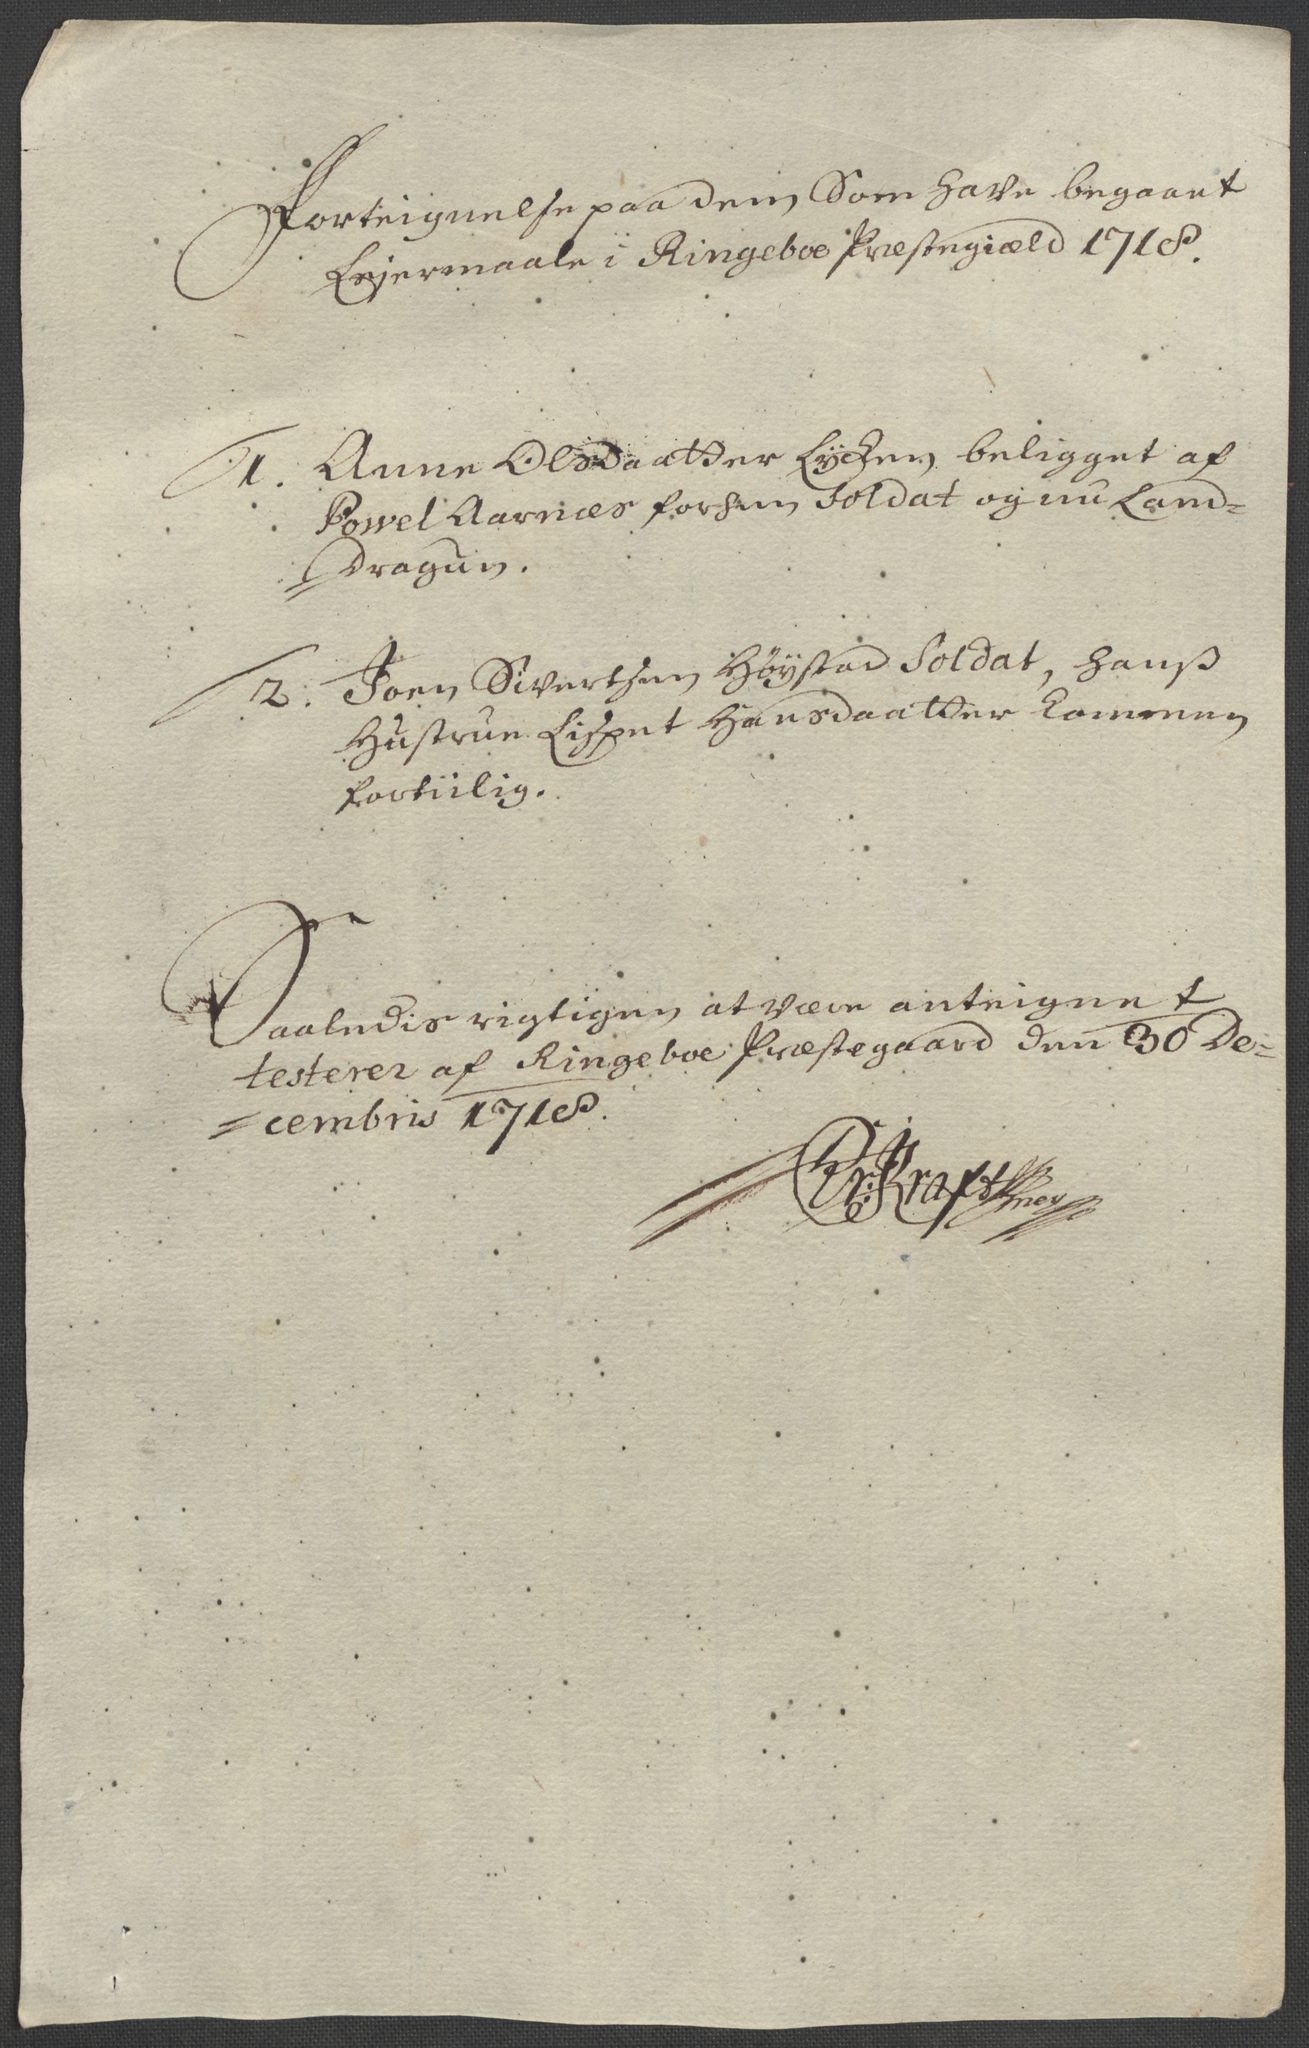 Forteignelse paa dem Som have begaaet
Lejermaale i Ringeboe Præstegiæld 1718.
1. Anne Olsdaatter Lychen beligget af
Powel Aarnæs forhen Soldat og nu Land=
Dragun.
2. Joen Siverthsen Høÿstad Soldat, hanß
Hustrue Lispet Hansdaatter kommen
fortiilig.
Saaledis rigtigen at være anteignet
testerer af Ringeboe Præstegaard den 30 De=
=cembris 1718.
Kraft